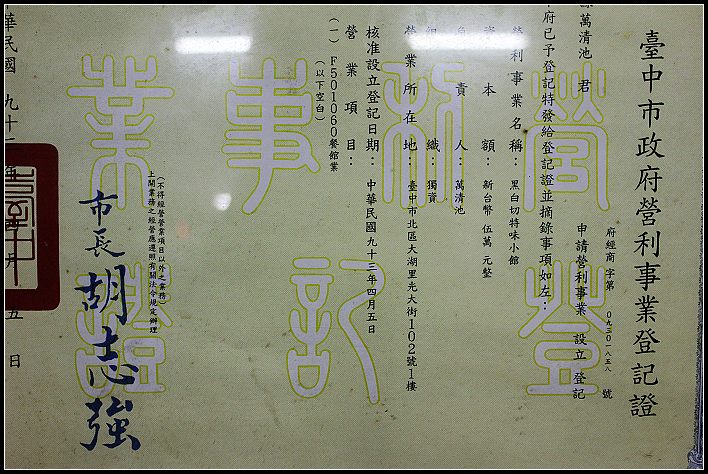 臺中市政府營利事業登記證
府經商字第0930一八五八號
萬清池 君 申請營利事業 設立 登記
府已予登記特發給登記證並摘錄事項如左：
營利事業名稱：黑白切特味小館
資本額：新台幣 伍萬 元整
負責人：萬清池
組織：獨資
營業所在地：臺中市北區大湖里光大街102號1樓
核准設立登記日期：中華民國九十三年四月五日
營業項目：
(一) F501060餐館業
(以下空白)
(不得經營營業項目以外之業務)
上開業務之經營應遵照有關法令規定辦理
市長 胡志強
華民國 九十三年 四月 五 日
營利事業登記證